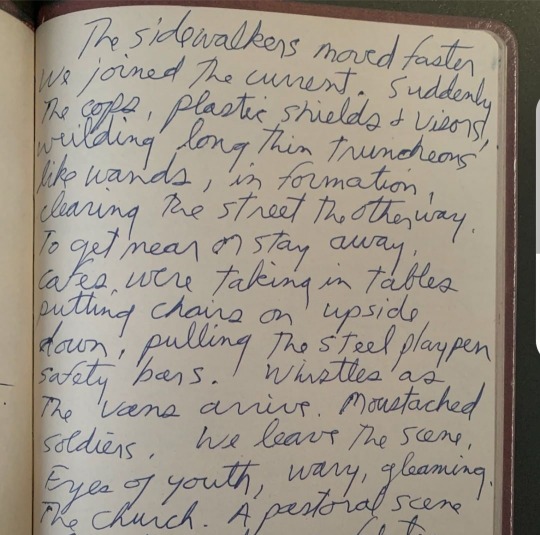 The sidewalkers moved faster
we joined the current. Suddenly
The cops, plastic shields & visors,
weilding long thin truncheons
like wands, in formation,
clearing the street the other way.
To get near or stay away,
cafes were taking in tables
putting chairs on upside
down, pulling the steel playpen
safety bars. Whistles as
The vans arrive. Moustached
soldiers. We leave the scene,
Eyes of youth, wary, gleaming.
The church. A pastoral scene